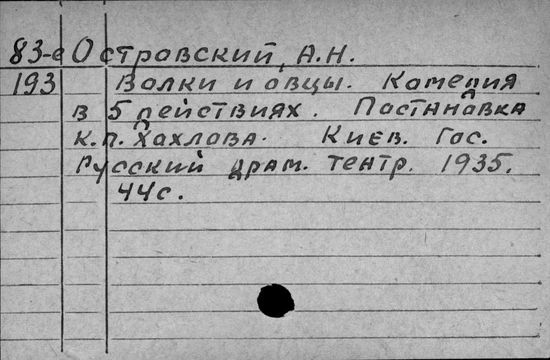 83-е Островский, А.Н.
193 Волки и овцы. Комедия
в 5 действиях. Постановка
К.П. Хохлова. Киев. Гос.
Русский драм. театр. 1935.
44с.